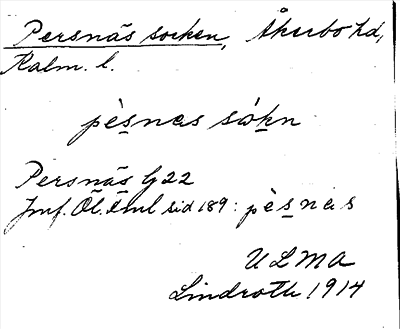 Persnäs socken, Åkerbo hd,
Kalm. l.
pèsnes sòkn
Persnäs G 22
Jmf. Öl. sid 189: pèsnas
ULMA
Lindroth 1914